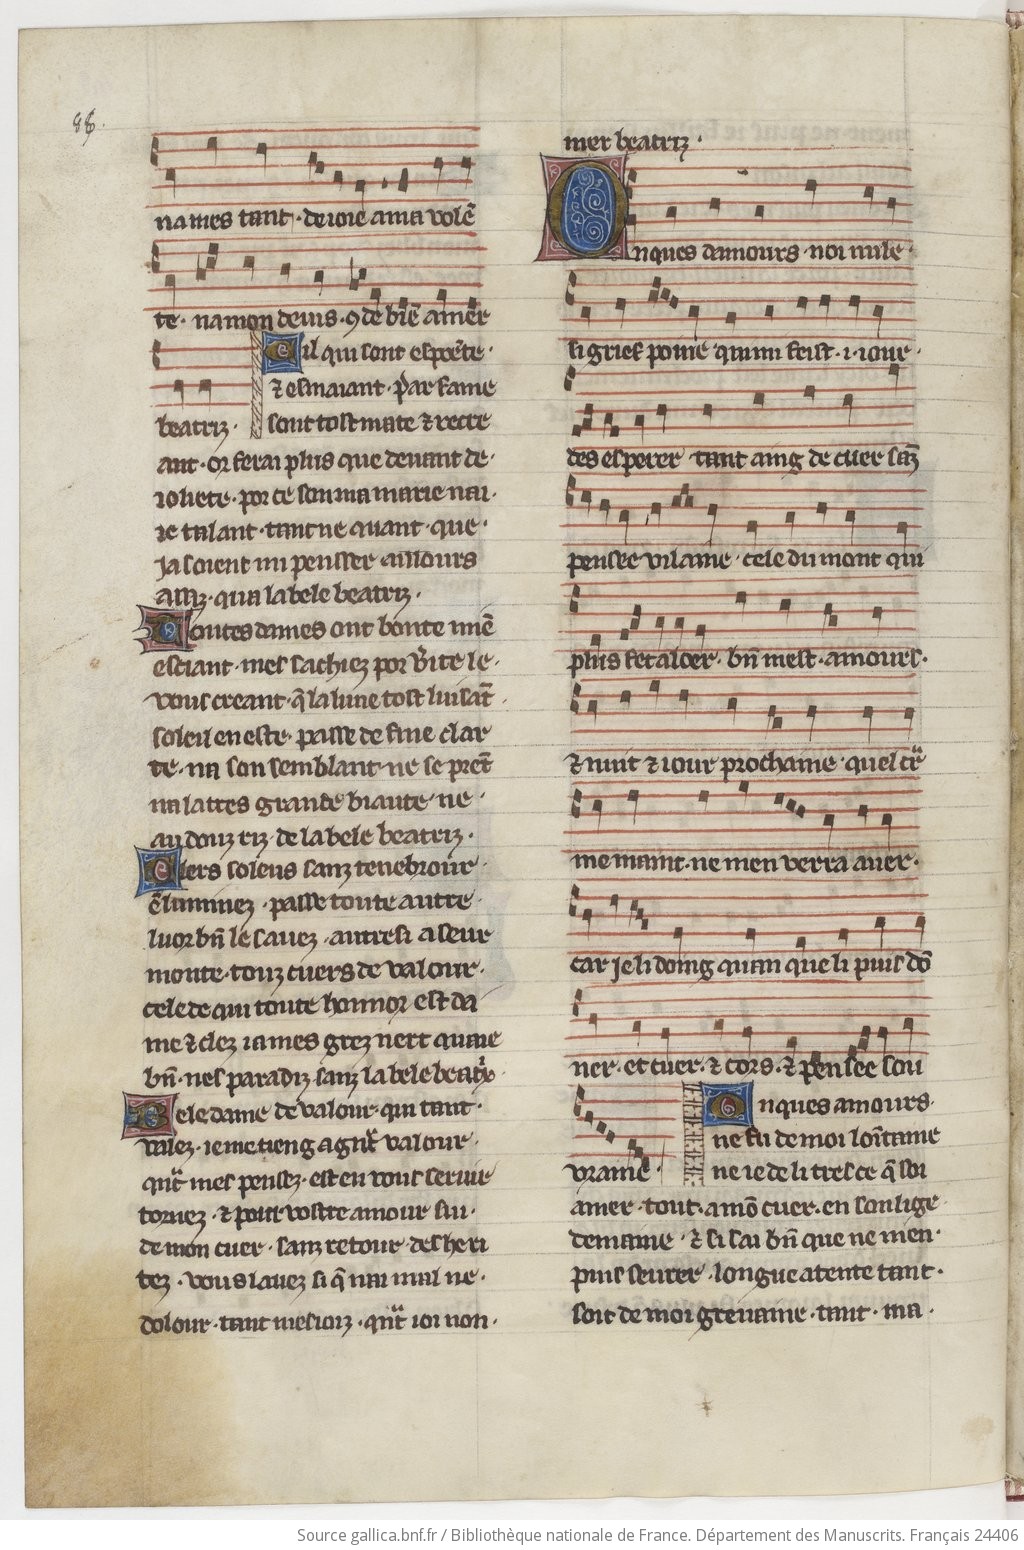 na mes tant · de ioie a ma volē
te · na mon deuis · ꝯ de biē amer
beatriz ·
Cil qui sont espoēte ·
⁊ esmaiant · par fame
sont tost mate ⁊ recre
ant · or ferai plus que deuant de ·
ioliete · por ce son ma marie nai ·
ie talant · tant ne quant · que ·
ja soient mi pensser · aillours
assiz · qua la bele beatriz ·
Toutes dames ont bonte miē
esciant · mes sachiez por v̾ite le ·
vous creant · q̄ la lune tost luisāt ·
soleil en este · passe de fine clar
te · na son semblant · ne se prēt
nulautes grande biaute · ne ·
au douz riz · de la bele beatriz ·
Clers soleus sanz tenebrour ·
ēluminez · passe toute autre ·
luor bn̄ le sauez · autresi a seur
monte · touz cuers de valour ·
cele de qui toute honnor est da
me ⁊ clez iames grez nert qui me
bn̄ · nes paradiz sanz la bele beat̾x ·
Bele dame de valour · qui tant ·
valez · ie me tieng a gnt̄ valour ·
qnt̄ mes pensez · est en vous seruir
tornez · ⁊ pour vostre amour sui ·
de mon cuer · sanz retour desheri
tez · vous lauez si q̄ nai mal ne ·
dolour · tant mesiorz · qnt̄ ioi non ·
mer beatriz ·
Onques damours · noi nule ·
si grief poine quini feist · i · iour ·
des esperer tant aing de cuer sāz
pensee vilaine · cele du mont qui
plus fet aloer · bn̄ mest · amours ·
⁊ nuit ⁊ iour prochaine · quel cēr
me maint · ne men verra auer ·
car je li doing quan que li puis dō
ner · et cuer · ⁊ cors · ⁊ pensee sou
vraine ·
Onques amours ·
ne fu de moi lōtaine
ne ie de li tresce q̄ soi
amer · tout · a mō cuer · en son lige ·
demaine · ⁊ si sai bn̄ que ne men ·
puis seurer · longue atente tant ·
soit de moi greuaine · tant · ma ·
Source gallica.bnf.fr / Bibliothèque nationale de France. Département des Manuscrits. Français 24406